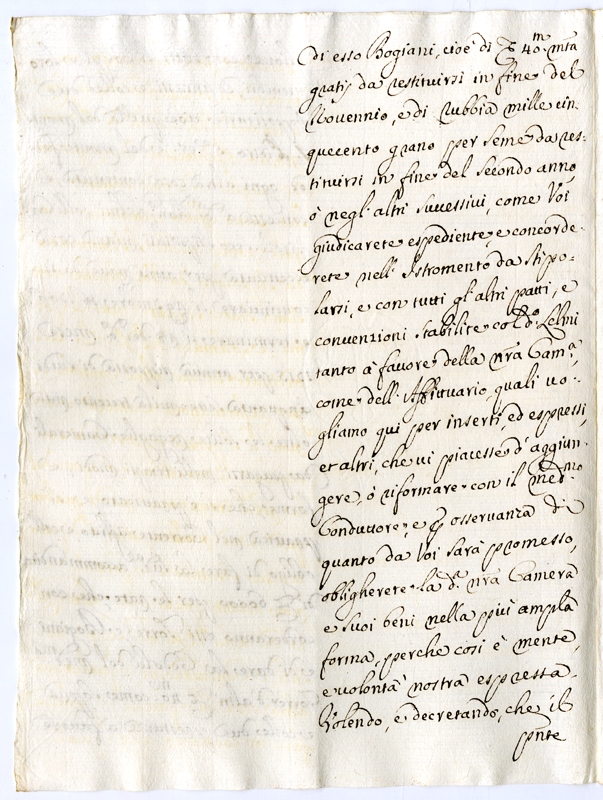 di esso Bogiani, cioè di 40.m mta
gratis da restituirsi in fine del
Novennio, e di rubbia mille cin
quecento grano per seme da res-
tituirsi in fine del secondo anno,
ò negl'altri successivi, come Voi
giudicarete espediente, e concorde-
rete nell'Istromento da stipo-
larsi, e con tutti gl'altri patti, e
convenzioni stabilite col do. Lelmi
tanto à favore della nra Cama.
come dell'Affittuario, quali vo-
gliamo qui per inserti, ed espressi,
et altri, che vi piacesse d'aggiun-
gere, ò riformare con il Medmo
Conduttore, e p osservanza di
quanto da Voi sarà promesso,
obligherete la da. nra Camera
e suoi beni nella più ampla
forma, perche così è mente,
e volontà nostra espressa.
Volendo, e decretando, che il
pnte